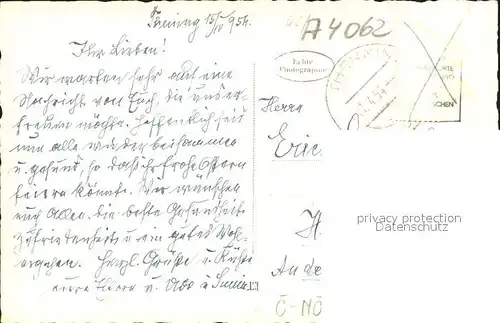 Theining 15/IV 954.
A4062
Ihr Lieben!
Echte
Photographie
Wir warten sehr auf eine
Nachricht von Euch, die uns er-
freuen möchte. Hoffentlich seid
nun alle wieder beisammen
u. gesund, so daß ihr frohe Ostern
feiern könnt. Wir wünschen
euch allen die beste Gesundheit
Zufriedenheit u. ein gutes Wohl-
ergehen. Herzl. Grüße u. Küsse
eure Eltern u.
Herrn
Eric
H
Ande
Č-NÖ
privacy protection
Datenschutz